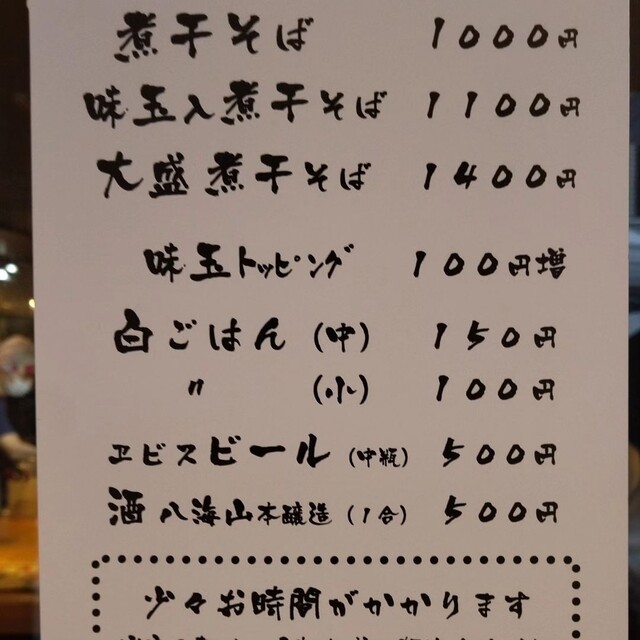 煮干そば 1000円
味玉入煮干そば 1100円
大盛煮干そば 1400円
味玉トッピング 100円増
白ごはん(中) 150円
〃 (小) 100円
ヱビスビール(中瓶) 500円
酒 八海山本醸造(1合) 500円
少々お時間がかかります